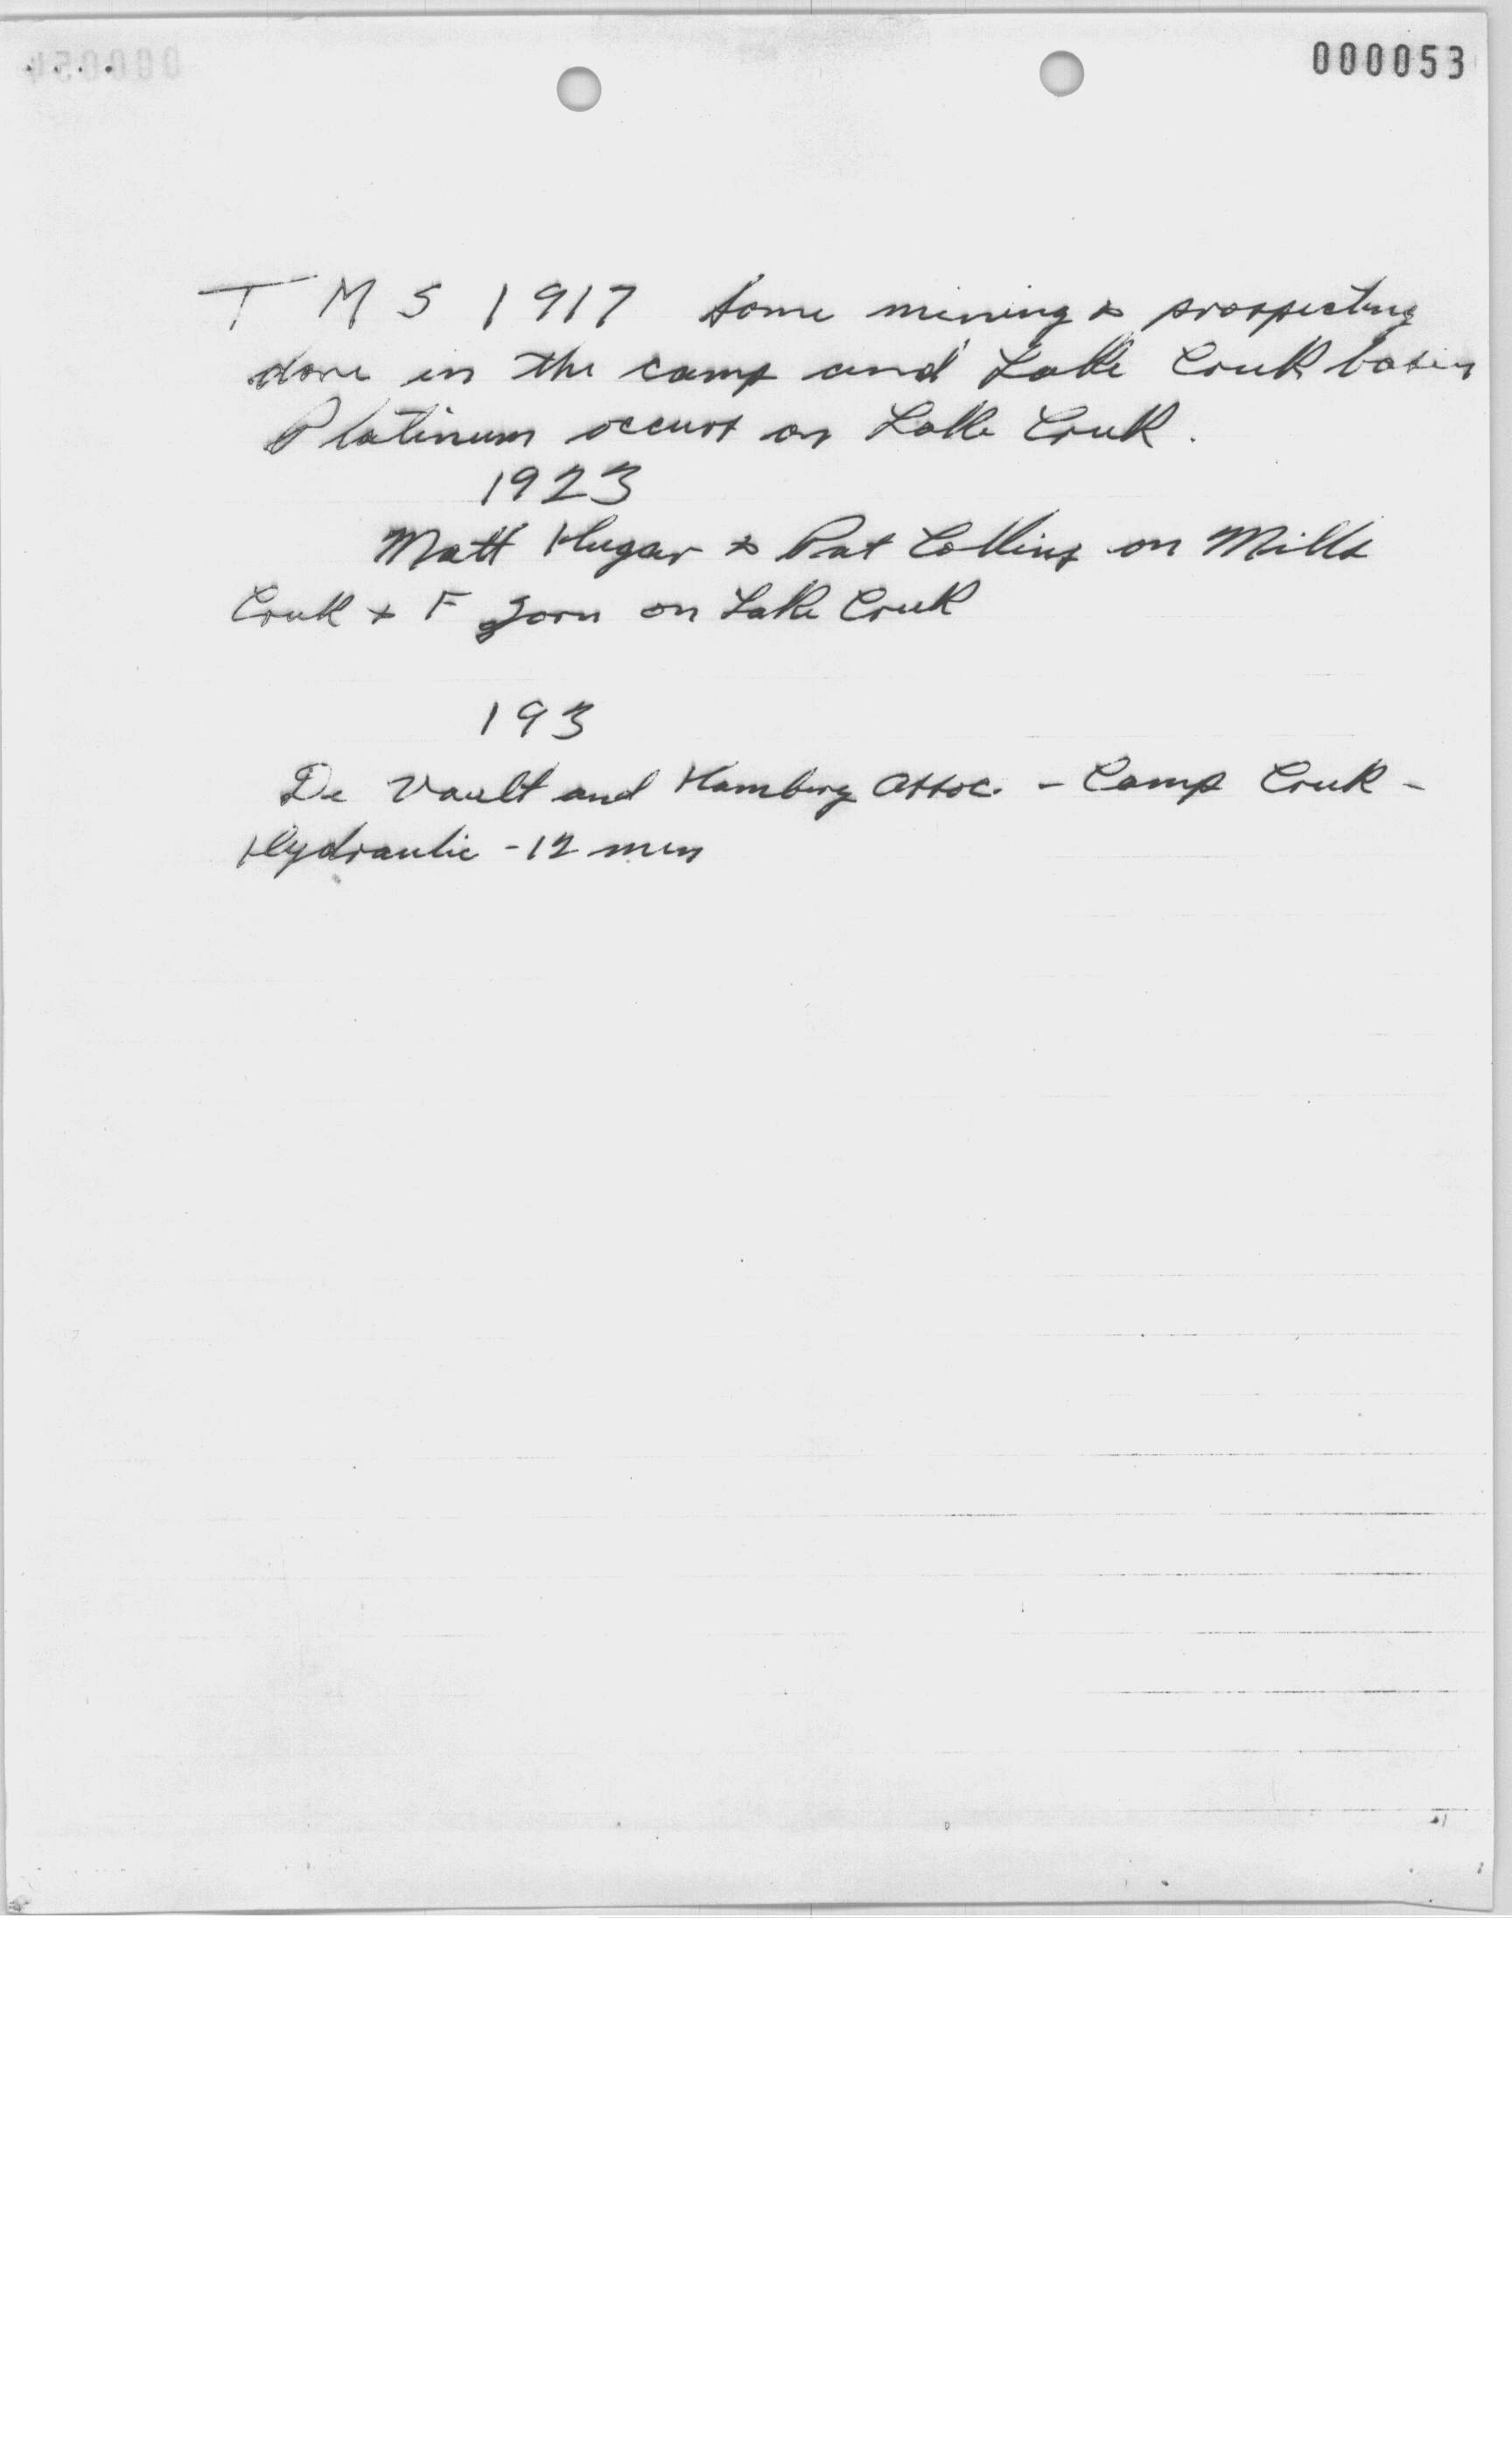 000053
T M S 1917 Some mining & prospecting
done in the camp and Lake Creek basin
Platinum occurs on Lake Creek.
1923
Matt Hugar & Pat Collins on Mills
Creek + F on Lake Creek
193
De Vault and Hamberg Assoc. - Camp Creek -
Hydraulic - 12 men